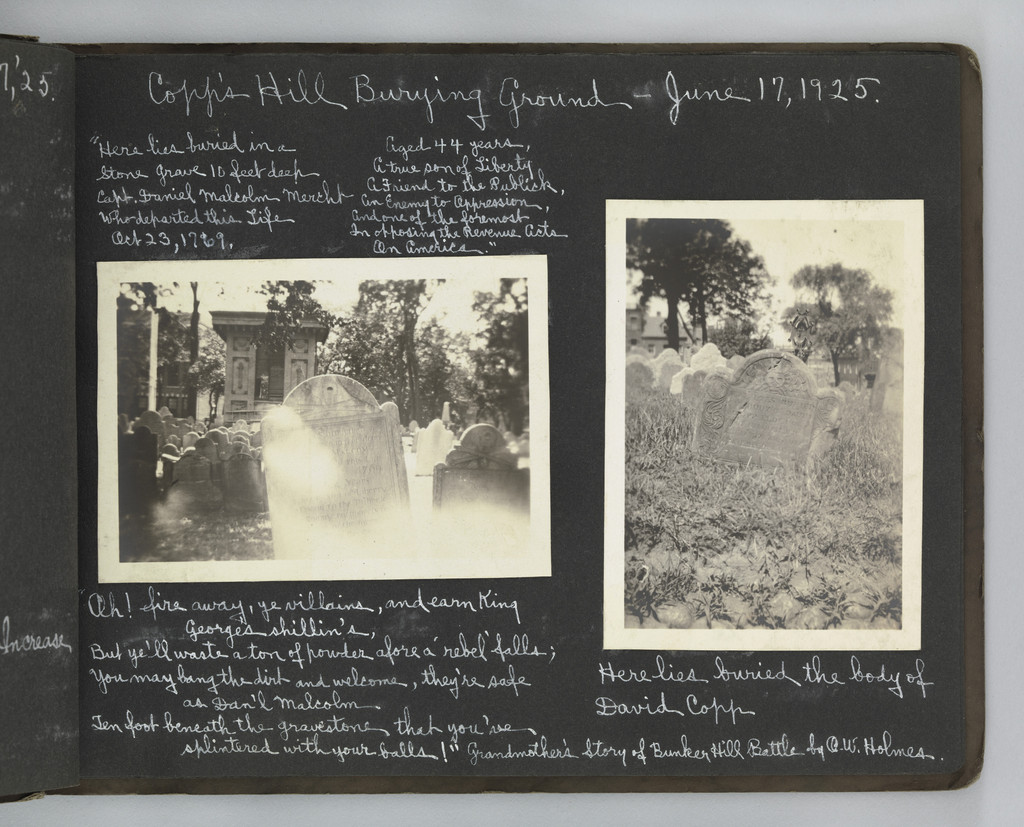 7,'25.
Copp's Hill Burying Ground - June 17, 1925.
"Here lies buried in a
Stone grave 10 feet deep
Capt. Daniel Malcolm Mercht
Who departed this Life
Oct 23, 1769.
Aged 44 years,
A true son of Liberty
A Friend to the Publick,
An Enemy to Oppression,
And one of the foremost
In opposing the Revenue Acts
On America."
"Oh! fire away, ye villains, and earn King
George's shillin's,
But ye'll waste a ton of powder afore a 'rebel' falls;
You may bang the dirt and welcome, they're safe
as Dan'l Malcolm
Ten foot beneath the gravestone that you've
splintered with your balls!" Grandmother's Story of Bunker Hill Battle by O.W. Holmes.
Here lies buried the body of
David Copp
Increase